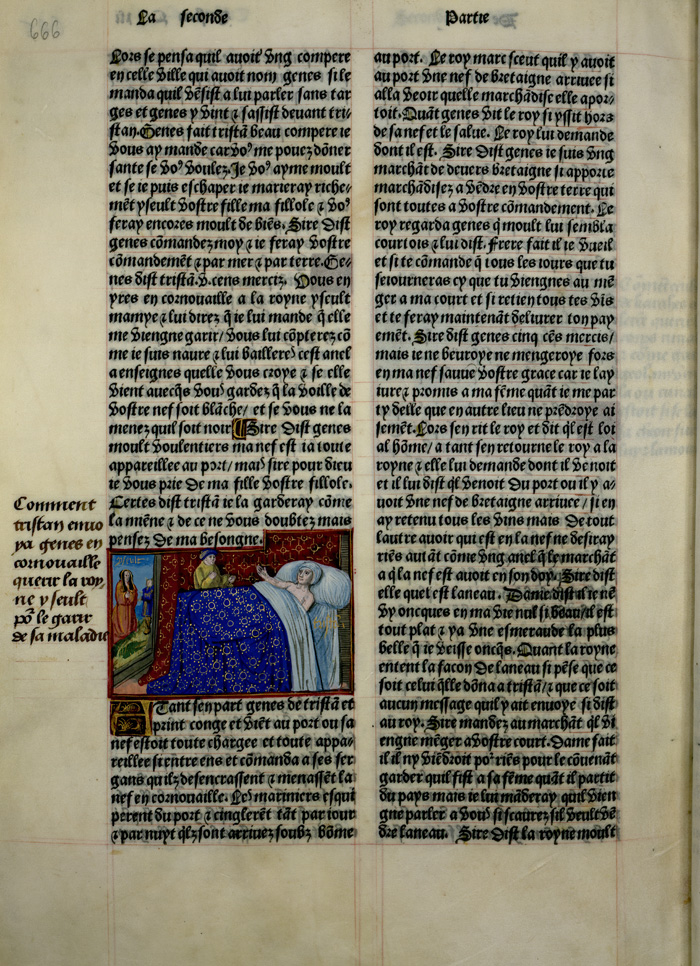 666
La seconde
Partie
Lors se pensa quil auoit vng compere
en celle ville qui auoit nom genes si le
manda quil vẽsist a lui parler sans tar
ges et genes y vint ⁊ sassist deuant tri-
stan. Genes fait tristã beau compere ie
vous ay mande car voꝰ me pouez dõner
sante se voꝰ voulez. Je voꝰ ayme moult
et se ie puis eschaper ie marieray riche-
mẽt yseult vostre fille ma fillole ⁊ voꝰ
feray encores moult de biẽs. Sire dist
genes cõmandez moy ⁊ ie feray vostre
cõmandemẽt ⁊ par mer ⁊ par terre. Ge-
nes dist tristã. v. cens merciz. Vous en
yres en cornouaille a la royne yseult
mamye ⁊ lui direz q̃ ie lui mande q̃ elle
me viengne garir/ vous lui cõpterez cõ
me ie suis naure ⁊ lui baillerez cest anel
a enseignes quelle vous croye ⁊ se elle
vient auecq̃s vous gardez q̃ la voille de
vostre nef soit blãche/ et se vous ne la
menez quil soit noir Sire dist genes
moult voulentiers ma nef est ia toute
appareillee au port/ mais sire pour dieu
ie vous prie de ma fille vostre fillole.
Certes dist tristã ie la garderay cõme
la miẽne ⁊ de ce ne vous doubtez mais
pensez de ma besongne.
Comment
tristan enuo
ya genes en
cornouaille
querir la roy
ne yseult
põ le garir
de sa maladie
Tant sen part genes de tristã et
print conge et viẽt au port ou sa
nef estoit toute chargee et toute appa-
reillee si entre ens et cõmanda a ses ser
gans quilz desencrassent ⁊ menassẽt la
nef en cornouaille. Les mariniers esqui
perent du port ⁊ cinglerẽt tãt par iour
⁊ par nuyt q̃lz sont arriuez soubz bõme
au port. Le roy marc sceut quil y auoit
au port vne nef de bretaigne arriuee si
alla veoir quelle marchãdise elle apor-
toit. Quãt genes vit le roy si yssit hors
de sa nef et le salue. Le roy lui demande
dont il est. Sire dist genes ie suis vng
marchãt de deuers bretaigne si apporte
marchãdisez a vẽdre en vostre terre qui
sont toutes a vostre cõmandement. Le
roy regarda genes q̃ moult lui sembla
courtois ⁊ lui dist. Frere fait il ie vueil
et si te cõmande q̃ tous les iours que tu
seiourneras cy que tu viengnes au mẽ
ger a ma court et si retien tous tes vis
et te feray maintenãt deliurer ton pay
emẽt. Sire dist genes cinq cẽs mercis/
mais ie ne beuroye ne mengeroye fors
en ma nef sauue vostre grace car ie lay
iure ⁊ promis a ma fẽme quãt ie me par
ty delle que en autre lieu ne prẽdroye ai
semẽt. Lors sen rit le roy et dit q̃l est loi
al hõme/ a tant sen retourne le roy a la
royne ⁊ elle lui demande dont il venoit
et il lui dist q̃l venoit du port ou il y a-
uoit vne nef de bretaigne arriuee/ si en
ay retenu tous les vins mais de tout
lautre auoir qui est en la nef ne desiray
riẽs autãt cõme vng anel q̃ le marchãt
a q̃ la nef est auoit en son doy. Sire dist
elle quel est laneau. Dame dist il ie ne
vy oncques en ma vie nul si beau/ il est
tout plat ⁊ ya vne esmeraude la plus
belle q̃ ie veisse oncq̃s. Quant la royne
entent la facon de laneau si pẽse que ce
soit celui q̃lle dõna a tristã/ ⁊ que ce soit
aucun message quil y ait enuoye si dist
au roy. Sire mandez au marchãt q̃l vi
engne mẽger a vostre court. Dame fait
il il ny viẽdroit poꝰ riẽs pour le couenãt
garder quil fist a sa fẽme quãt il partit
du pays mais ie lui mãderay quil vien
gne parler a vous si scaurez sil veult vẽ
dre laneau. Sire dist la royne moult